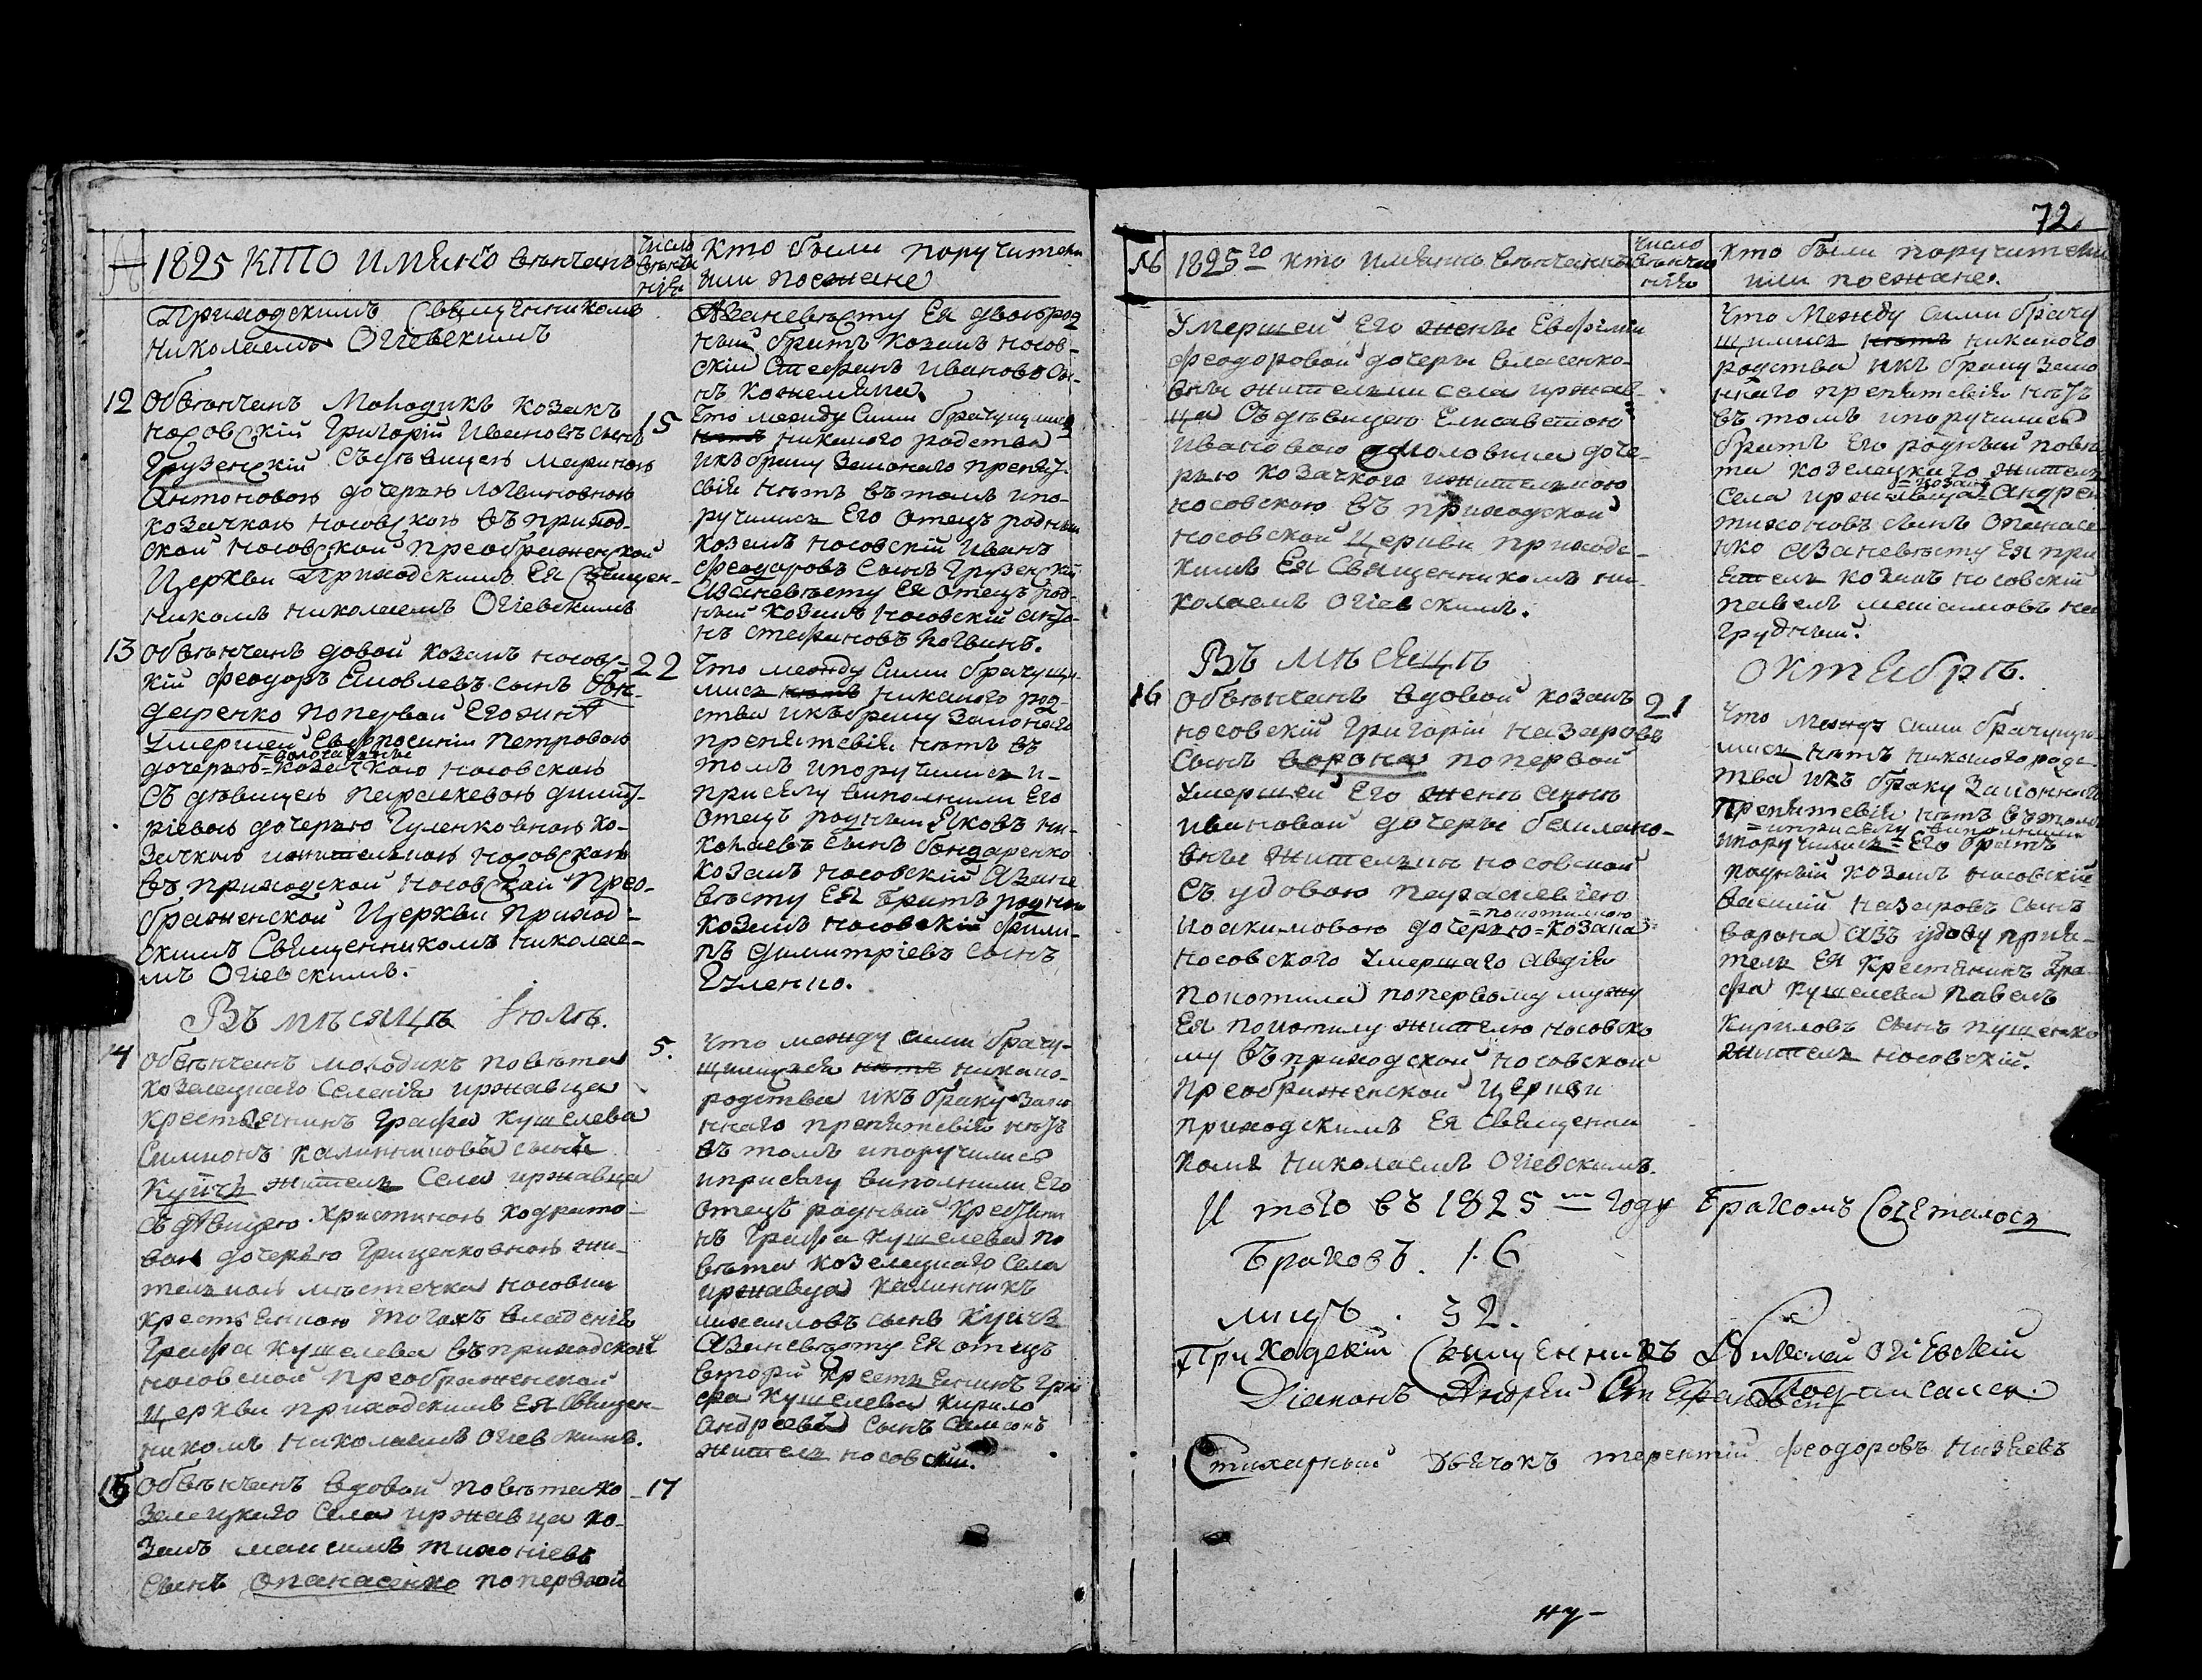 1825 Кто имянно вѣнчанъ
число вѣнча
нія
Кто были поручители
или поезжане
Приходскимъ Священникомъ
Николаемъ Огіевскимъ
Азаневѣсту Ея двоюрод
ный братъ козакъ носов-
скій Стефанъ Ивановъ сы-
нъ Кожемяка.
12 Обвѣнчанъ Молодикъ козакъ
носовскій Григорій Ивановъ сынъ
Грузенскій съ дѣвицею Мариною
Антоновою дочерью Логвиновною
козачкою носовскою въ приход-
ской носовской Преображенской
Церкви Приходскимъ Ея Священ-
никомъ Николаемъ Огіевскимъ
15
Что между Сими брачущимися
нѣтъ никакого родства
икъ браку Законаго препят-
свія нѣтъ въ томъ ипо-
ручились Его Отецъ родный
козакъ носовскій Иванъ
Феодоровъ Сынъ Грузенскій
Азаневѣсту Ея Отецъ род-
ный козакъ носовскій Анто-
нъ Стефановъ Логвинъ.
13 Обвѣнчанъ вдовой козакъ носовс-
кій Феодоръ Яковлевъ сынъ Бон-
даренко попервой Его жинѣ
Умершей Евфросиніи Петровою
дочерью козачкою носовскою
съ дѣвицею Параскевою Димит-
ріевою дочерью Гуленковною ко-
зачкою ижителькою носовскою
въ приходской носовской Прео-
браженской Церкви Приход-
скимъ Священникомъ Николае-
мъ Огіевскимъ.
22
Что между Сими брачущи-
мись нѣтъ никакого род-
ства икъ браку Законаго
препятствія нѣтъ въ
томъ ипоручились и-
присягу виполнили Его
отецъ родный Яковъ Ни-
колаевъ сынъ Бондаренко
козакъ носовскій Азане
вѣсту Ея братъ родный
козакъ носовскій Фили-
пъ Димитріевъ сынъ
Гуленко.
Въ мѣсяцѣ Июлѣ.
14 Обвѣнчанъ молодикъ повѣта
козелецкаго Селенія иржавца
крестьянинъ Графа Кушелева
Симионъ Калинниковъ сынъ
Куйчъ житель Села иржавца
съ дѣвицею Христиною Кодрато-
вою дочерью Гриценковною жи-
телькою мѣстечка носовки
крестьянкою тогожъ владенія
Графа Кушелева въ приходской
носовской Преображенской
Церкви приходскимъ Ея Священ-
никомъ Николаемъ Огіевскимъ.
5.
Что между сими брачу-
щимися нѣтъ никако-
родства икъ браку зако
ннаго препятствія нѣтъ
въ томъ ипоручились
иприсягу виполнили Его
отецъ родный Крестяни
нъ Графа Кушелева по
вѣта козелецкаго Села
иржавца Калинникъ
михаиловъ сынъ Куйчъ
Азаневѣсту Ея отецъ
вторій крестьянинъ Гра
фа Кушелева Кирило
Андреевъ Сынъ Самсонъ
житель носовскій.
15 Обвѣнчанъ вдовой повѣта ко-
зелецкаго Села иржавца ко-
закъ максимъ тихоніевъ
Сынъ Опанасенко попервой
17
72.
№ 1825го кто имянно вѣнчанъ
число
вѣнча
нія
Кто были поручители
или поезжане.
Умершей Его женѣ Евфиміи
Феодоровой дочеры Власенко-
вны жителки села иржав-
ца Съ дѣвицею Елисаветою
Ивановою дочe-
рью козачкою ижителькою
носовскою въ приходской
носовской церкви приходс-
кимъ Ея Священникомъ Ни-
колаемъ Огіевскимъ.
Что Между Сими брачу
щимись нѣтъ никакого
родства икъ браку Зако
ннаго препятствія нѣтъ
въ томъ ипоручился
братъ Его родный повѣ
та козелецкаго житель
Села иржавца =козакъ= Андрей
тихоновъ сынъ Опанасе
нко Азаневѣсту Ея при
ятель козакъ носовскій
павелъ максимовъ На
грудный.
Въ мѣсяцѣ
Октябрѣ.
16 Обвѣнчанъ вдовой козакъ
носовскій Григорій Назаровъ
Сынъ Ворона попервой
Умершей Его женѣ Аннѣ
Ивановой дочеры
вны жителки носовской
съ удовою параскевіею
Иоакимовою дочерью =покотилою= козака
носовского Умершаго Авдія
Покотила попервому мужу
Ея покотилу жителю носовско
му въ приходской носовской
преображенской церкви
приходскимъ Ея Священни
комъ Николаемъ Огіевскимъ.
21
Что Между сими брачущи
мись нѣтъ никакого родс-
тва икъ браку Законнаго
Препятствія нѣтъ въ томъ
=иприсягу виполнили
ипоручились= Его братъ
родный козакъ носовскій
Василій Назаровъ Сынъ
Ворона Аза удову прия-
тель Ея Крестянинъ Гра
фа Кушелева Павелъ
Кириловъ Сынъ Пушенко
житель носовскій.
И того въ 1825 м году Бракомъ Сочеталось
Браковъ. 16
лицъ. 32.
Приходскій Священникъ Николай Огіевскій
Діаконъ Андрей Подписался.
Стихарный Дьячокъ терентій феодоровъ